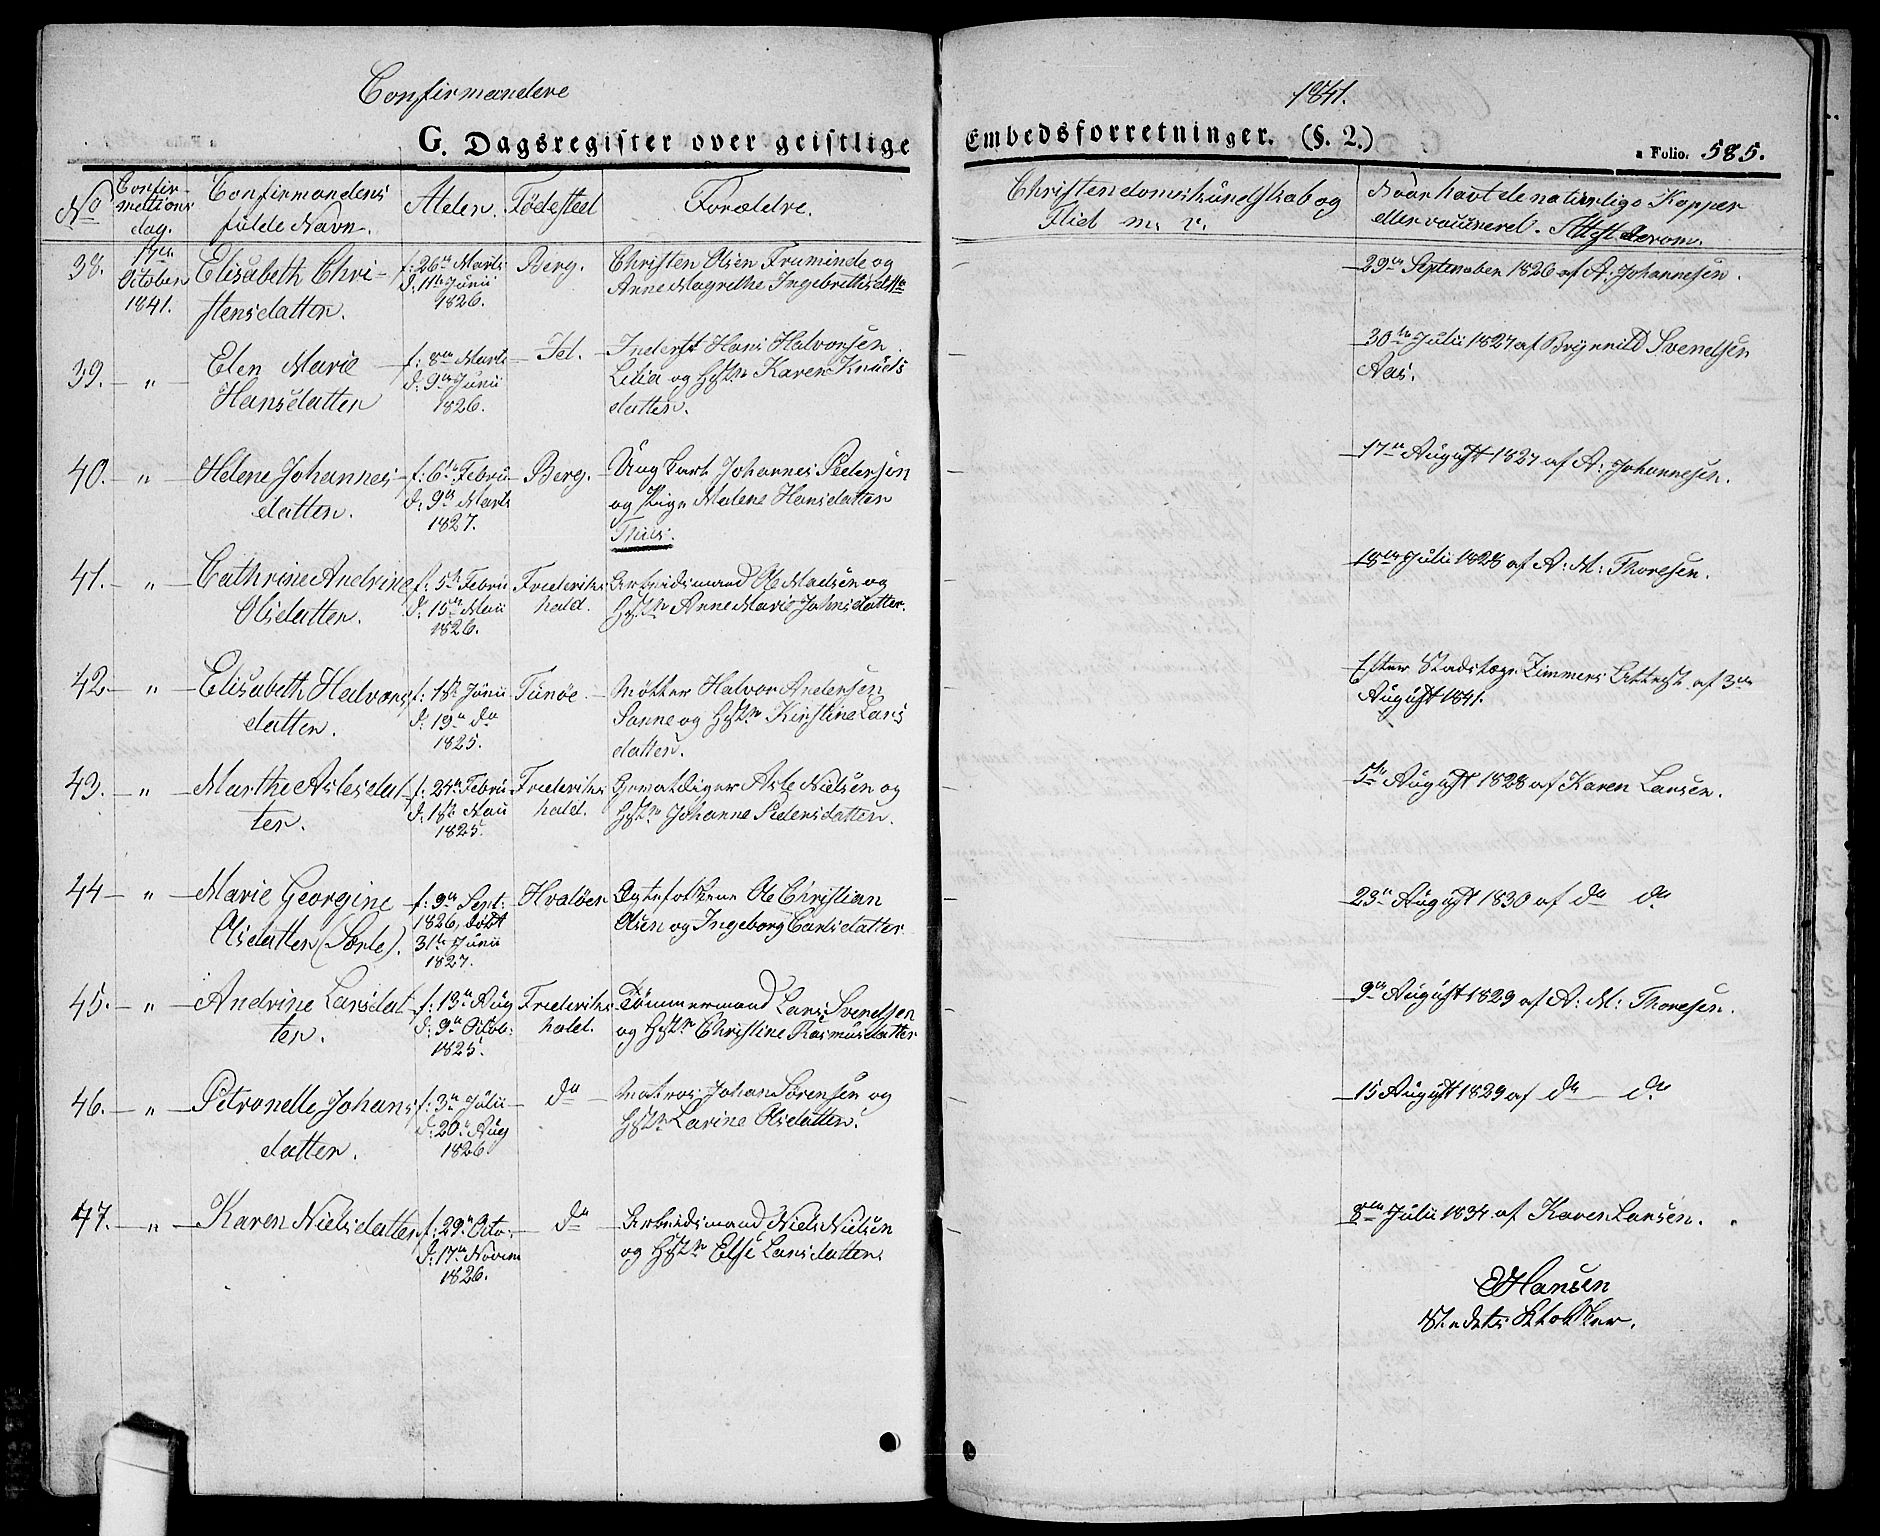 Confirmandere
1841.
G. Dagsregister over geistlige
Embedsforretninger. (§. 2.)
a Folio. 585.
No
Confirmations dag.
Confirmandens fulde Navn.
Alder.
Fødested
Forældre.
Christendomskundskab og Flid m. v.
Naar havt de naturlige Kopper
eller vaccineret. Attest derom.
38.
17de October 1841.
Elisabeth Chri-
stensdatter.
f: 26de Marts
d: 11te Junii
1826.
Berg.
Christen Olsen Fruminde og
Anne Magrethe Ingebrethsdttr
29de September 1826 af A: Johannesen.
39. — „ —
Elen Marie
Hansdatter
f: 8de Marts
d: 9de Junii
1826.
Id.
Inderst Hans Halvorsen
Lilia og Hstr Karen Knuds
datter.
30te Julii 1827 af Brynnild Svendsen
Aas.
40. — „ —
Helene Johannes
datter.
f: 6te Febru
d: 9de Marts
1827.
Berg.
Ung Karl Johannes Pedersen
og Pige Malene Hansdatter
17de August 1827 af A: Johannesen.
41. — „ —
Cathrine Andrine
Olsdatter.
f. 5te Febru
d: 15de Maii
1826.
Frederiks
hald.
Arbeidsmand Ole Madsen og
Hstr Anne Marie Johnsdatter.
18de Julii 1828 af A: M: Thoresen.
42 — „ —
Elisabeth Halvors
datter.
f: 1ste Junii
d: 19de do
1825.
Tunøe.
Møller Halvor Andersen
Sanne og Hstr Kirstine Lars
datter.
Efter Stadslæge Zimmers Attest af 3de
August 1841.
43. — „ —
Marthe Aslesdat
ter.
f: 24de Febru
d: 1ste Maii
1825.
Frederiks
hald.
Gevaldiger Asle Nielsen og
Hstr Johanne Pedersdatter.
5te August 1828 af Karen Larsen.
44 — „ —
Marie Georgine
Olsdatter (Sørle).
f: 9de Sept:
1826, døbt
31te Junii
1827.
Hvaløer
Ægtefolkene Ole Christian
Olsen og Ingeborg Carlsdatter
23de August 1830 af do do
45. — „ —
Andrine Larsdat
ter.
f: 13de Aug
d: 9de Octob:
1825.
Frederiks
hald.
Tømmermand Lars Svendsen
og Hstr Christine Rasmusdatter
9de August 1829 af A: M: Thoresen.
46. — „ —
Petronelle Johans
datter.
f: 3de Julii
d: 20de Aug
1826
do
Matros Johan Sørensen og
Hstr Larine Olsdatter.
15 August 1829 af do — do
47. — „ —
Karen Nielsdatter
f: 29de Octo:
d: 17de Novem
1826.
do
Arbeidsmand Niels Nielsen
og Hstr Else Larsdatter
8de Julii 1834 af Karen Larsen.
Hansen
Stedets Klokker.